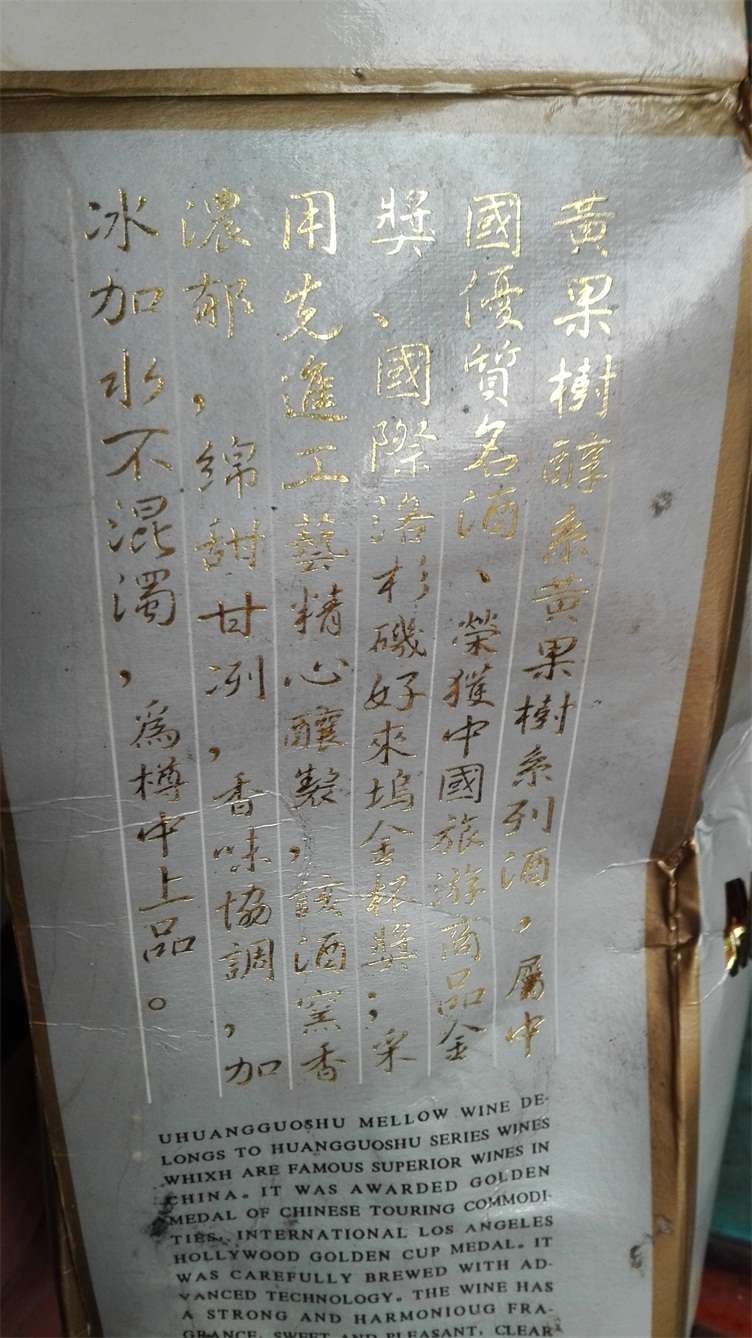 黃果樹醇系黃果樹系列酒，屬中
國優質名酒、榮獲中國旅游商品金
獎、國際洛杉磯好來塢金杯獎；采
用先進工藝精心釀製，該酒窖香
濃郁，綿甜甘冽，香味協調，加
冰加水不混濁，爲樽中上品。
UHUANGGUOSHU MELLOW WINE DE-
LONGS TO HUANGGUOSHU SERIES WINES
WHIXH ARE FAMOUS SUPERIOR WINES IN
CHINA. IT WAS AWARDED GOLDEN
MEDAL OF CHINESE TOURING COMMODI-
TIES, INTERNATIONAL LOS ANGELES
HOLLYWOOD GOLDEN CUP MEDAL. IT
WAS CAREFULLY BREWED WITH AD-
VANCED TECHNOLOGY. THE WINE HAS
A STRONG AND HARMONIOUG FRA-
GRANCE, SWEET AND PLEASANT, CLEAR